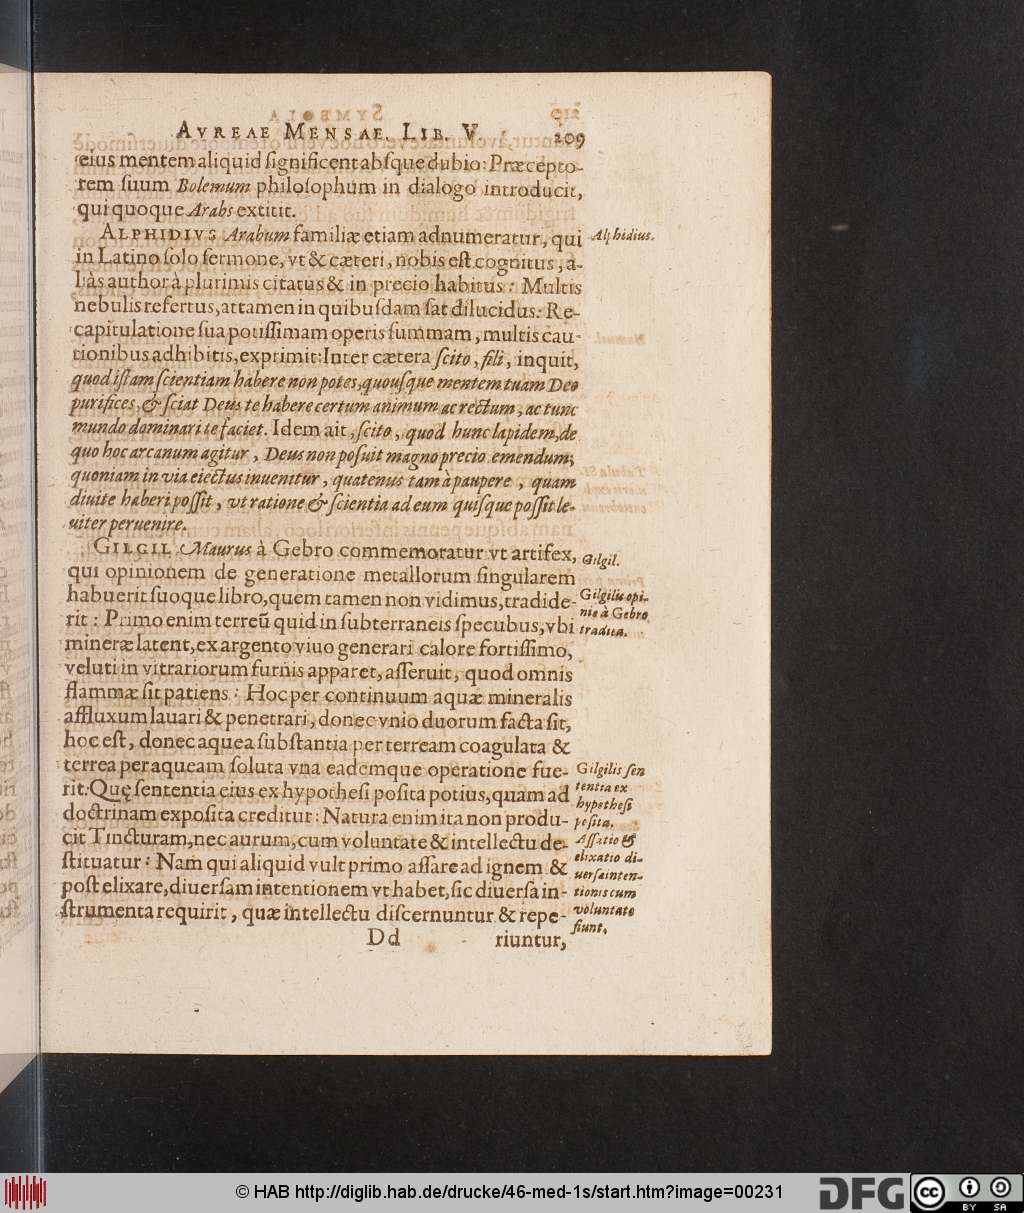 AVREAE MENSAE. LIB. V. 209
eius mentem aliquid significent absque dubio: Præcepto-
rem suum Bolemum philosophum in dialogo introducit,
qui quoque Arabs extitit.
ALPHIDIVS Arabum familiæ etiam adnumeratur, qui
Alphidius.
in Latino solo sermone, vt & cæteri, nobis est cognitus, a-
liàs author à plurimis citatus & in precio habitus: Multis
nebulis refertus, attamen in quibusdam sat dilucidus: Re-
capitulatione sua potissimam operis summam, multis cau-
tionibus adhibitis, exprimit: Inter cætera scito, fili, inquit,
quod istam scientiam habere non potes, quousque mentem tuam Deo
purifices, & sciat Deus te habere certum animum ac rectum, ac tunc
mundo dominari te faciet. Idem ait, scito, quod hunc lapidem, de
quo hoc arcanum agitur, Deus non posuit magno precio emendum;
quoniam in via eiectus inuenitur, quatenus tam à paupere, quam
diuite haberi possit, vt ratione & scientia ad eum quisque possit le-
uiter peruenire.
GILGIL Maurus à Gebro commemoratur vt artifex,
Gilgil.
qui opinionem de generatione metallorum singularem
habuerit suoque libro, quem tamen non vidimus, tradide-
Gilgilis opi-
nio à Gebro
tradita.
rit: Primo enim terreū quid in subterraneis specubus, vbi
mineræ latent, ex argento viuo generari calore fortissimo,
veluti in vitrariorum furnis apparet, asseruit, quod omnis
flammæ sit patiens: Hoc per continuum aquæ mineralis
affluxum lauari & penetrari, donec vnio duorum facta sit,
hoc est, donec aquea substantia per terream coagulata &
terrea per aqueam soluta vna eademque operatione fue-
Gilgilis sen
tentia ex
hypothesi
posita.
rit: Quę sententia eius ex hypothesi posita potius, quam ad
doctrinam exposita creditur: Natura enim ita non produ-
cit Tincturam, nec aurum, cum voluntate & intellectu de-
Assatio &
elixatio di-
uersa inten-
tionis cum
voluntate
fiunt.
stituatur: Nam qui aliquid vult primo assare ad ignem &
post elixare, diuersam intentionem vt habet, sic diuersa in-
strumenta requirit, quæ intellectu discernuntur & repe-
Dd riuntur,
© HAB http://diglib.hab.de/drucke/46-med-1s/start.htm?image=00231
DFG
cc BY SA